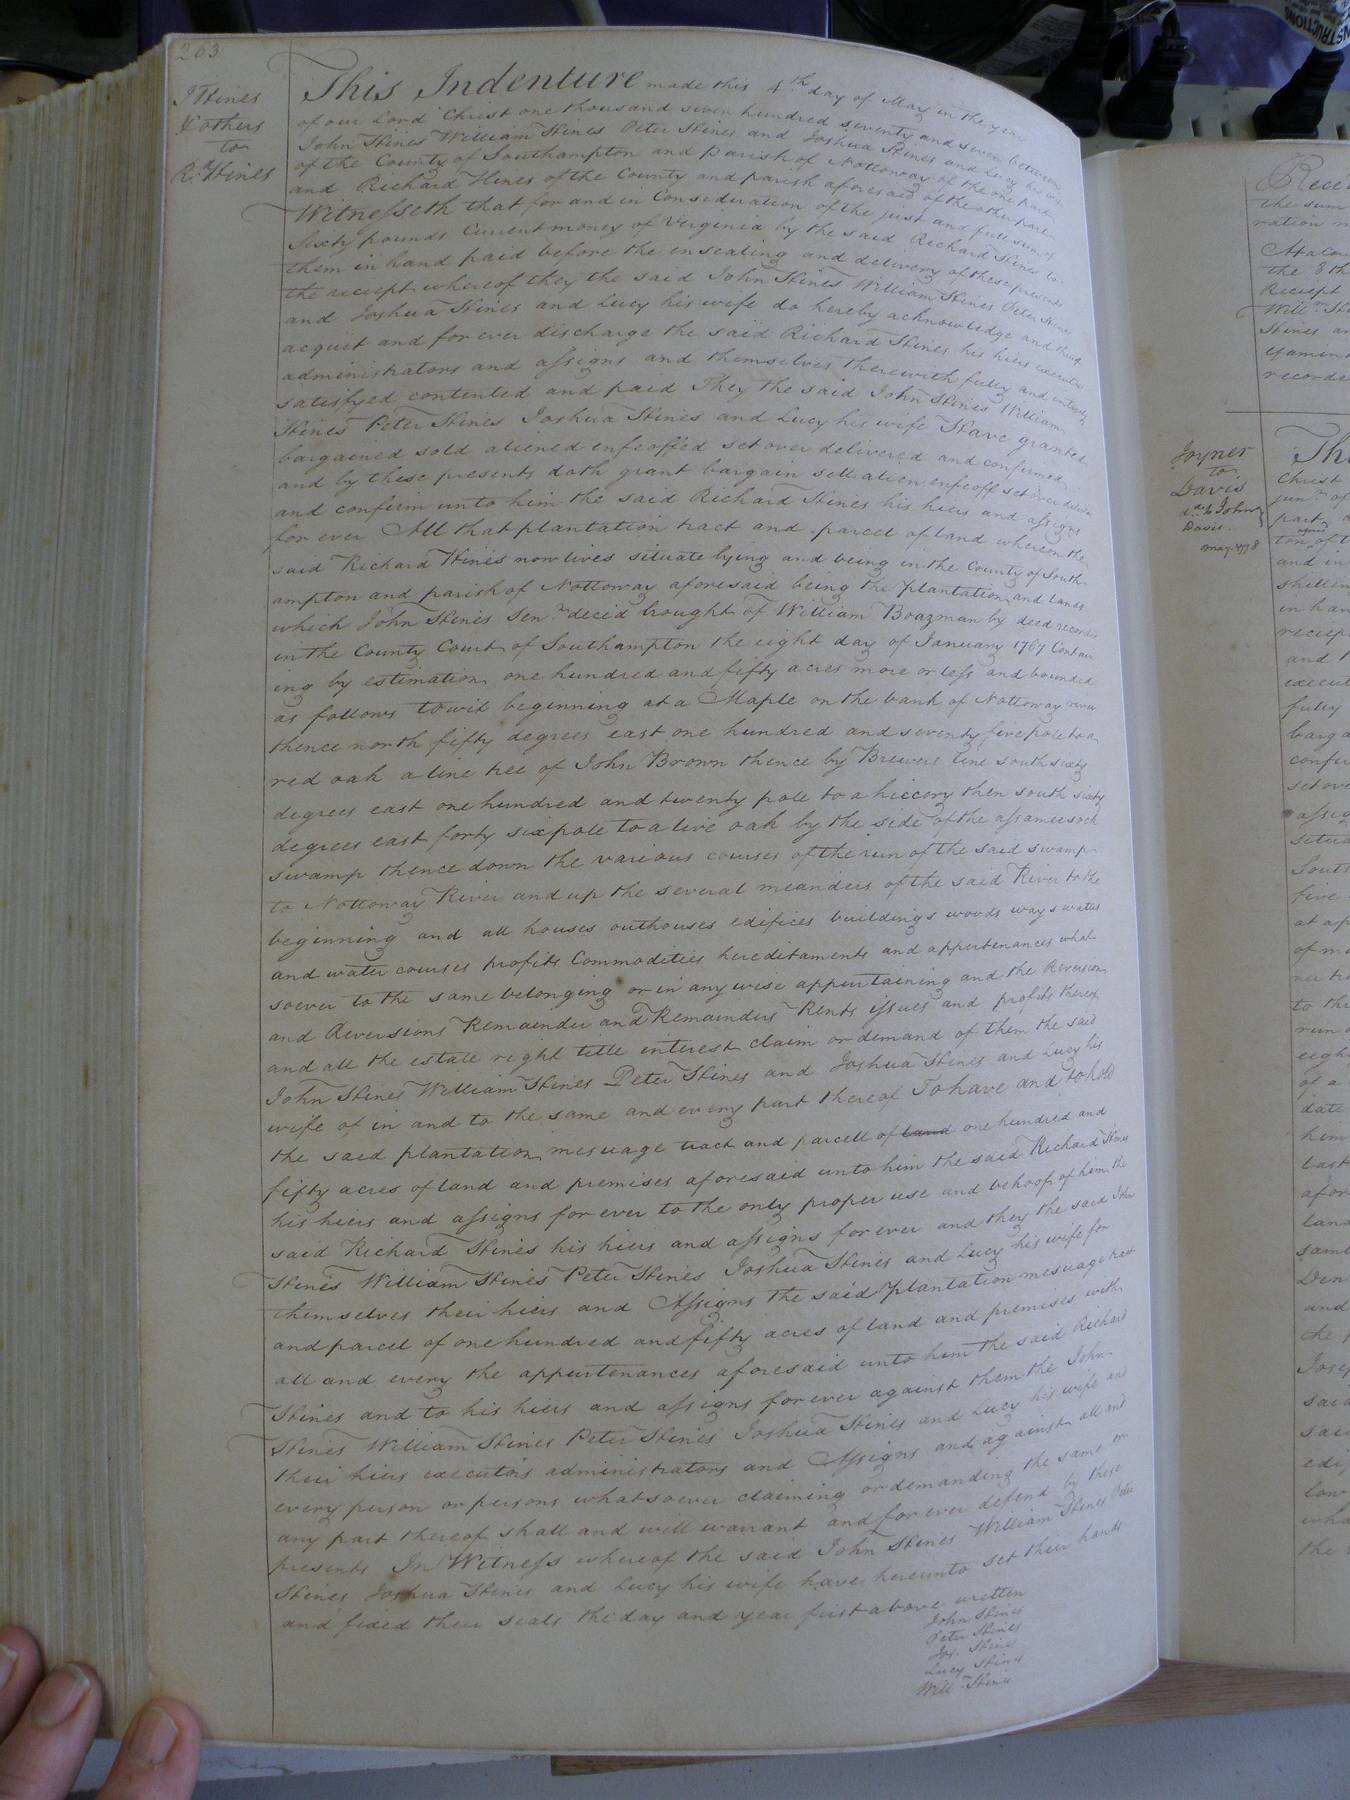 263
J Hines
& others
to
Rd. Hines
This Indenture made this 8th day of May in the year
of our Lord Christ one thousand seven hundred seventy and seven between
John Hines William Hines Peter Hines and Joshua Hines and Lucy his wife
of the County of Southampton and Parish of Nottoway of the one part
and Richard Hines of the County and parish aforesaid of the other part
Witnesseth that for and in Consideration of the just and full sum of
Sixty pounds Current money of Virginia by the said Richard Hines to
them in hand paid before the ensealing and delivery of these presents
the reciept whereof they the said John Hines William Hines Peter Hines
and Joshua Hines and Lucy his wife do hereby acknowledge and thereof
acquit and for ever discharge the said Richard Hines his hiers executors
administrators and assigns and themselves therewith fully and intirely
satisfyed contented and paid They the said John Hines William
Hines Peter Hines Joshua Hines and Lucy his wife Have granted
bargained sold aliened enfeoffed set over delivered and confirmed
and by these presents doth grant bargain sell alien enfeoff set over deliver
and confirm unto him the said Richard Hines his hiers and assigns
for ever All that plantation tract and parcel of land wherein the
said Richard Hines now lives situate lying and being in the County of South-
ampton and parish of Nottoway aforesaid being the plantation and lands
which John Hines Senr. decd. bought of William Boazman by deed recorded
in the County Court of Southampton the eight day of January 1767 Contain
ing by estimation one hundred and fifty acres more or less and bounded
as follows towit beginning at a Maple on the bank of Nottoway river
thence north fifty degrees east one hundred and seventy five pole to a
red oak a line tree of John Brown thence by Brewers line south sixty
degrees east one hundred and twenty pole to a hiccory then south sixty
degrees east forty six pole to a live oak by the side of the assameesock
swamp thence down the various courses of the run of the said swamp
to Nottoway River and up the several meanders of the said River to the
beginning and all houses outhouses edifices buildings woods ways waters
and water courses profits Commodities hereditaments and appertenances what
soever to the same belonging or in any wise appertaining and the Reversion
and Reversions Remainder and Remainders Rents issues and profits thereof
and all the estate right title interest claim or demand of them the said
John Hines William Hines Peter Hines and Joshua Hines and Lucy his
wife of in and to the same and every part thereof To have and to hold
the said plantation mesuage tract and parcell of land one hundred and
fifty acres of land and premises aforesaid unto him the said Richard Hines
his hiers and assigns for ever to the only proper use and behoof of him the
said Richard Hines his hiers and assigns for ever and they the said John
Hines William Hines Peter Hines Joshua Hines and Lucy his wife for
themselves their hiers and Assigns the said plantation mesuage tract
and parcel of one hundred and fifty acres of land and premises with
all and every the appurtenances aforesaid unto him the said Richard
Hines and to his hiers and assigns for ever against them the John
Hines William Hines Peter Hines Joshua Hines and Lucy his wife and
their hiers executors administrators and Assigns and against all and
every person or persons whatsoever claiming or demanding the same or
any part thereof shall and will warrant and for ever defend by these
presents In Witness whereof the said John Hines William Hines Peter
Hines Joshua Hines and Lucy his wife have hereunto set their hands
and fixed their seals the day and year first above written
John Hines
Peter Hines
Jos. Hines
Lucy Hines
Will Hines
the sum
ration
the 8th
Reciept
Hines
recorde
Joyner
to
Davis
Davis
May 1778
Christ
part
and in
shillin
in han
reciep
and
execut
fully
barga
set over
assig
South
five
at a
of m
to th
run
eigh
of a
date
him
last
afor
land
same
and
the
said
said
low
wha
the